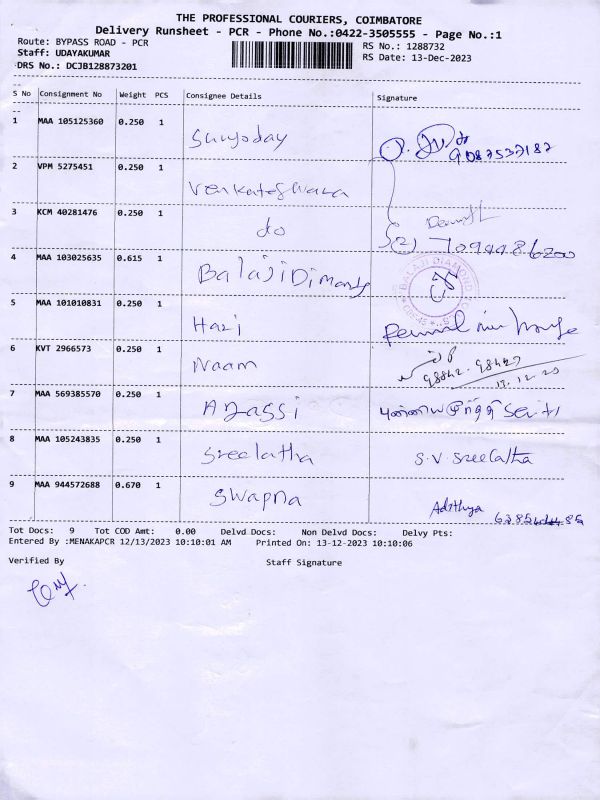 THE PROFESSIONAL COURIERS, COIMBATORE
Delivery Runsheet - PCR - Phone No.:0422-3505555 - Page No.:1
Route: BYPASS ROAD - PCR
Staff: UDAYAKUMAR
DRS No.: DCJB128873201
RS No.: 1288732
RS Date: 13-Dec-2023
S No Consignment No Weight PCS Consignee Details Signature
1 MAA 105125360 0.250 1 Suryoday
9087537187
2 VPM 5275451 0.250 1 Venkateshwara
3 KCM 40281476 0.250 1 do
7094486200
4 MAA 103025635 0.615 1 Balaji Dimands
BALAJI DIAMOND
5 MAA 101010831 0.250 1 Hari
6 KVT 2966573 0.250 1 Naam
98842 98427
7 MAA 569385570 0.250 1 Agassi
8 MAA 105243835 0.250 1 Sreelatha S.V Sreelatha
9 MAA 944572688 0.670 1 Swapna Adithya
Tot Docs: 9 Tot COD Amt: 0.00 Delvd Docs: Non Delvd Docs: Delvy Pts:
Entered By :MENAKAPCR 12/13/2023 10:10:01 AM Printed On: 13-12-2023 10:10:06
Verified By Staff Signature